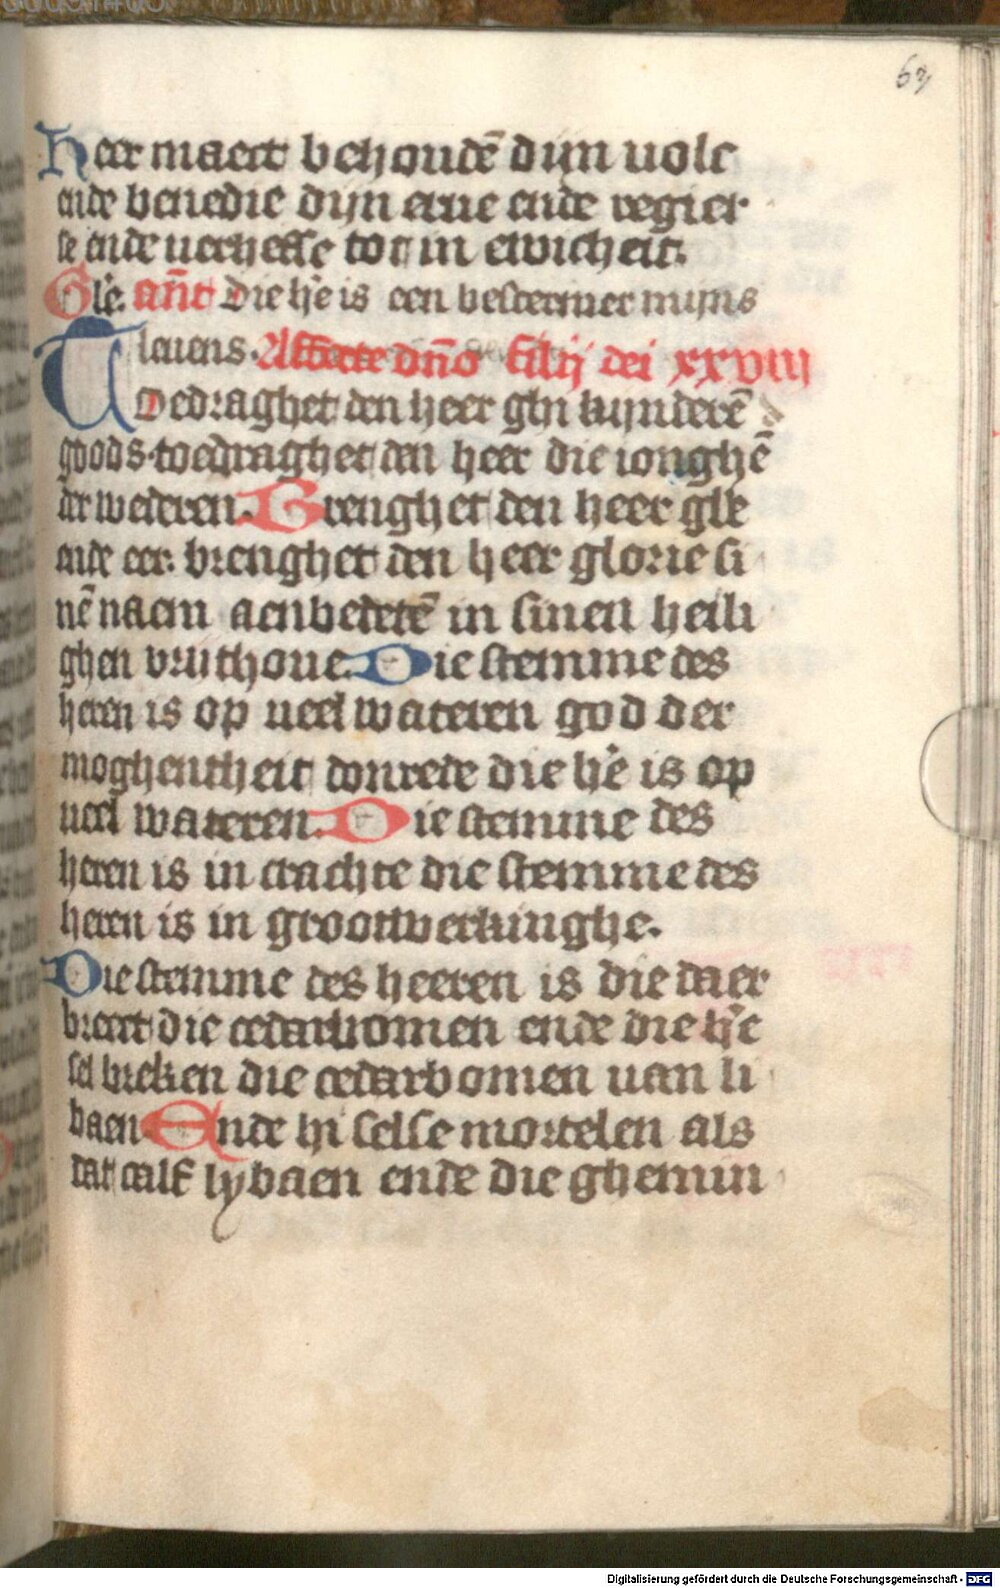 63
Heer maect behoudē dijn volc
ende benedie dijn erue ende regier
se ende uerheffe tot in ewicheit.
Glē. ant̄ Die hē is een bescermer mijns
leuens. Afferte dn̄o filij dei xxviii
Toedraghet den heer ghi kijnderē
goods. toedraghet den heer die ionghē
der wederen. Brenghet den heer glē
ende eer. brenghet den heer glorie si
nē naem aenbedetē in sinen heili
ghen vrithoue. Die stemme des
heren is op ueel wateren god der
moghentheit donrede die hē is op
ueel wateren. Die stemme des
heren is in crachte die stemme des
heren is in grootwerkinghe.
Die stemme des heeren is die daer
brect die cedarbomen ende die hē
sel breken die cedarbomen uan li
baen Ende hi selse mortelen als
dat calf lybaen ende die ghemin
Digitalisierung gefördert durch die Deutsche Forschungsgemeinschaft - DFG